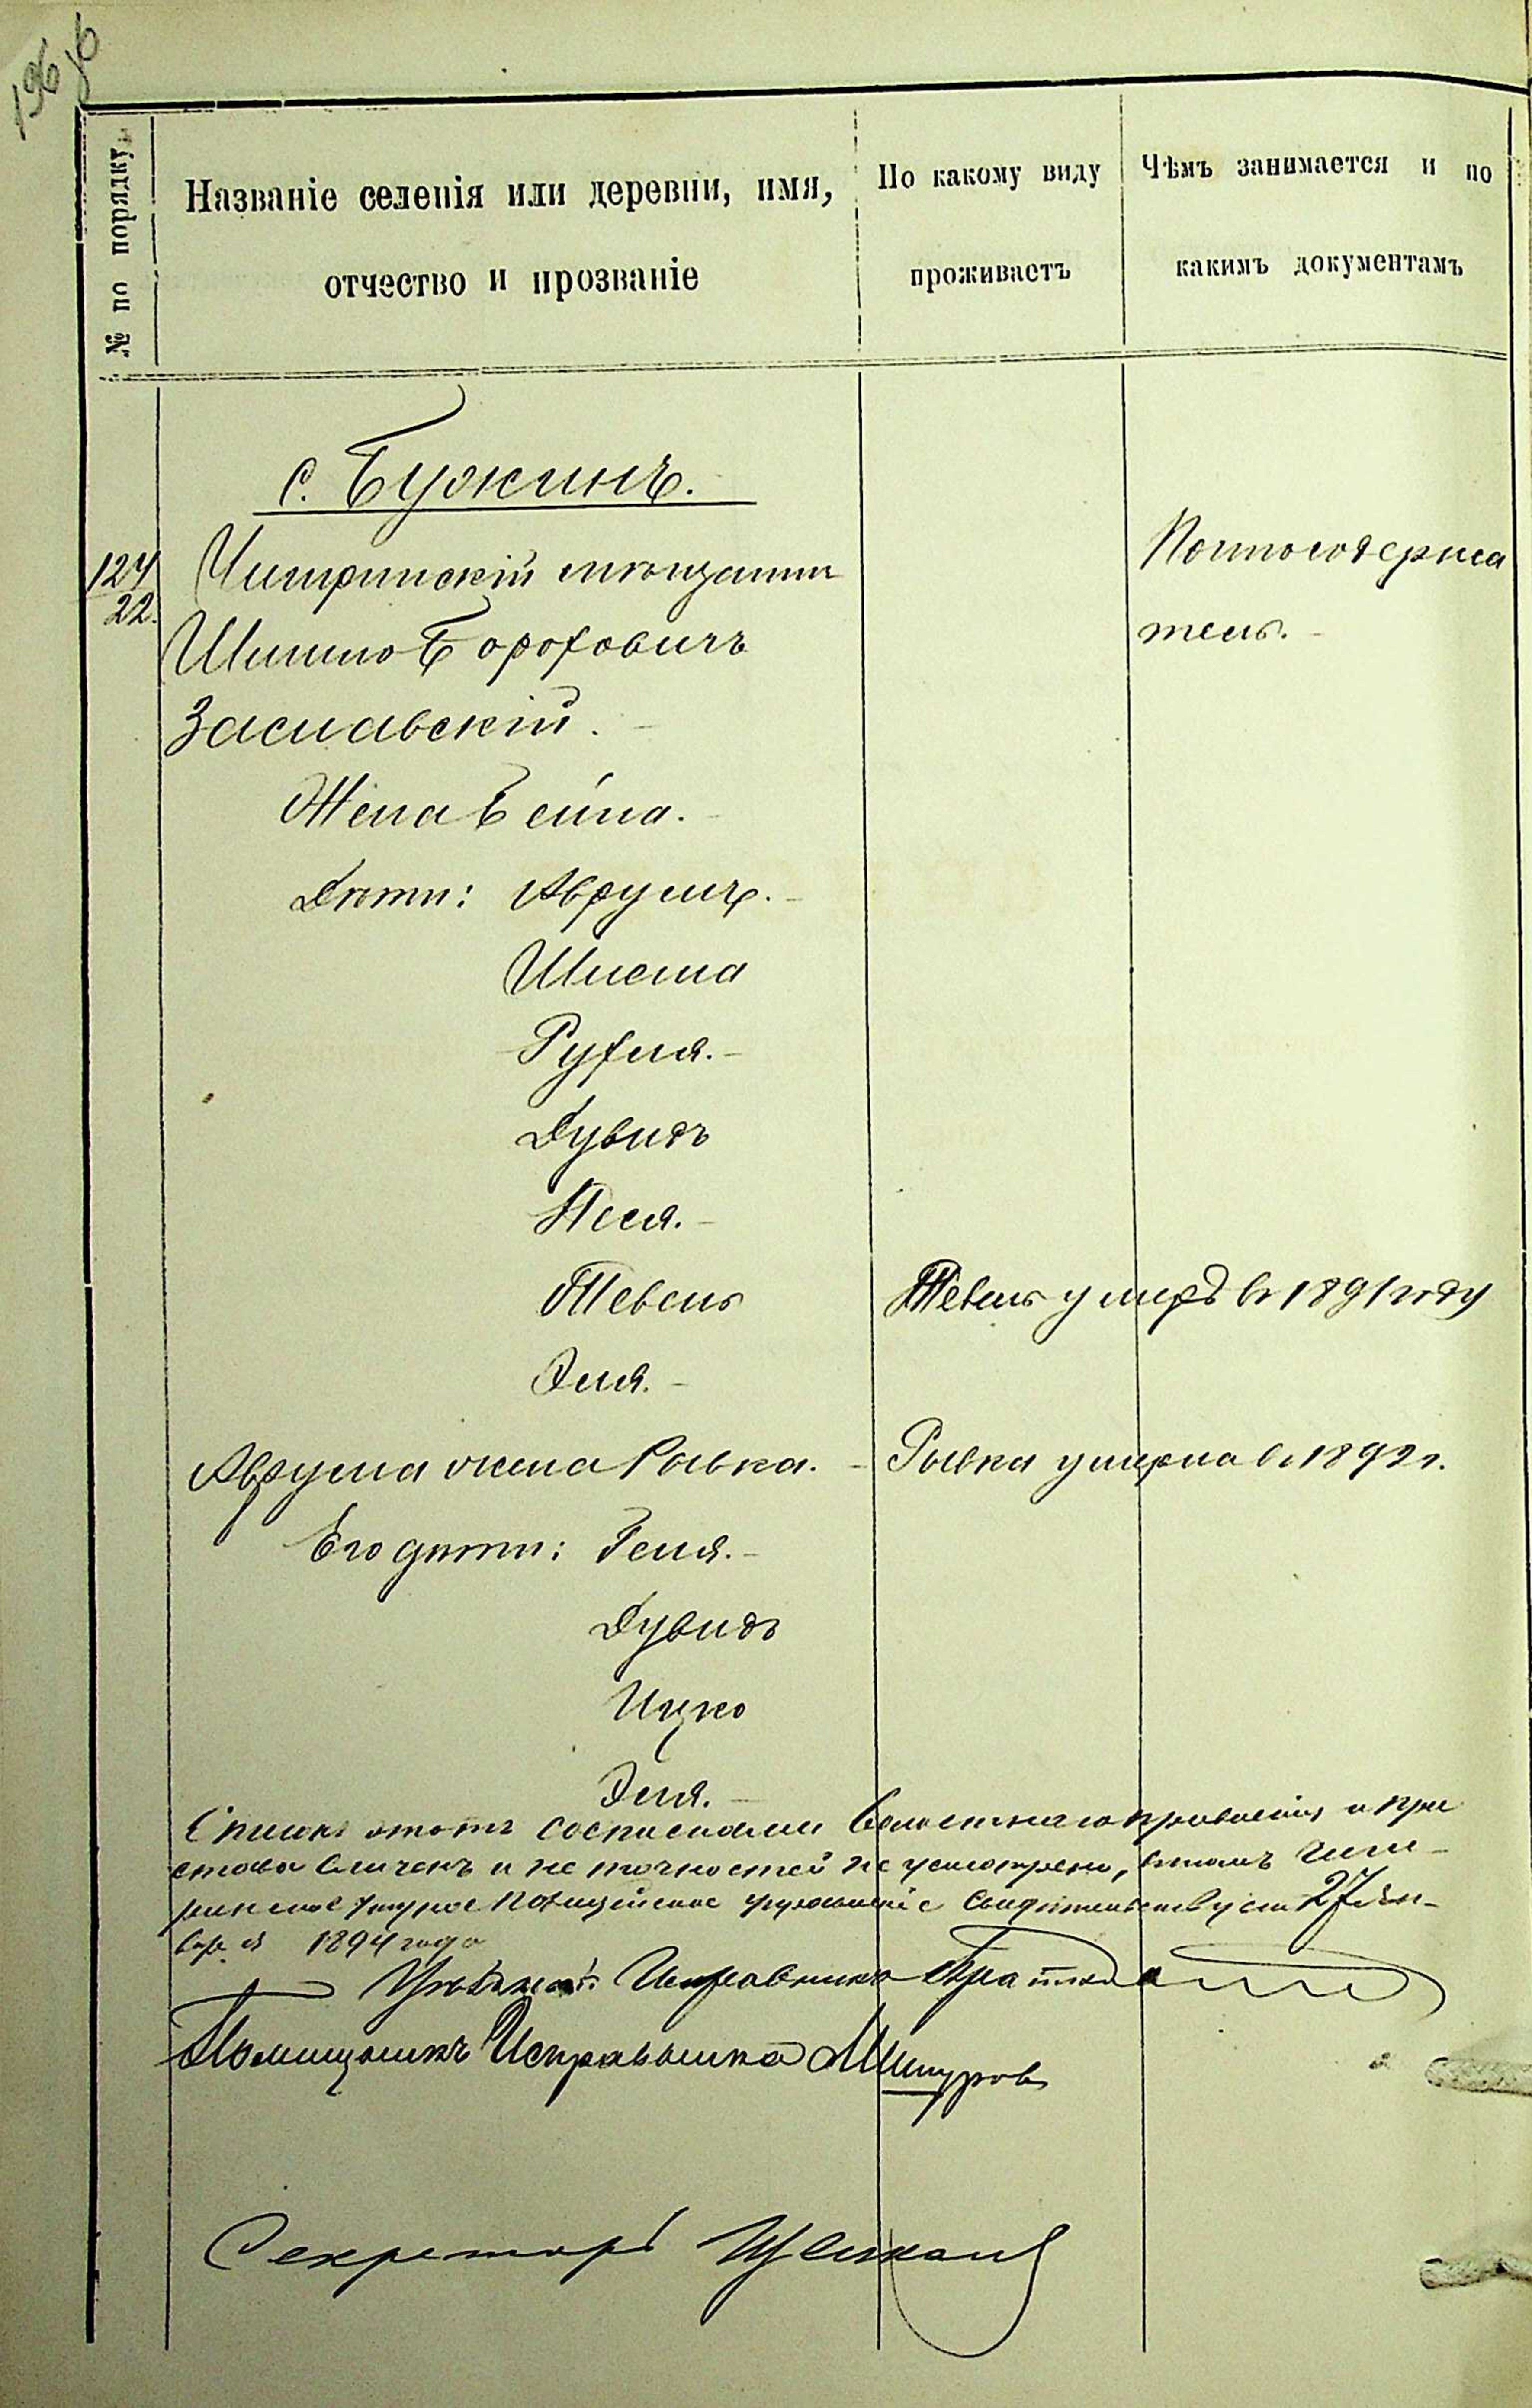 196 об
№ по порядку.
Названіе селенія или деревни, имя,
отчество и прозваніе
По какому виду
проживаетъ
Чѣмъ занимается и по
какимъ документамъ
с. Бужинъ.
124
22.
Чигринскій мѣщанин
Шимно Бороховичъ
Заславскій.
Почтосодержа
тель.
Жена Бейла.
Дѣти: Аврумъ.
Шлема
Рухля.
Дувидъ
Песя.
Тевель
Тевель умеръ в 1891 году
Эля.
Аврума жена Рывка.
Рывка умерла в 1892 г.
Его дѣти: Геня.
Дувидъ
Ицко
Эля.
Списокъ этотъ со списками Волостнаго правленія и при
става сличенъ и неточностей не усмотрено, в томъ Чиги-
ринское уѣздное Полицейское управленіе свидѣтельствуетъ 27 Ян-
варя 1894 года
Уѣздный Исправникъ
Помощникъ Исправника
Секретарь